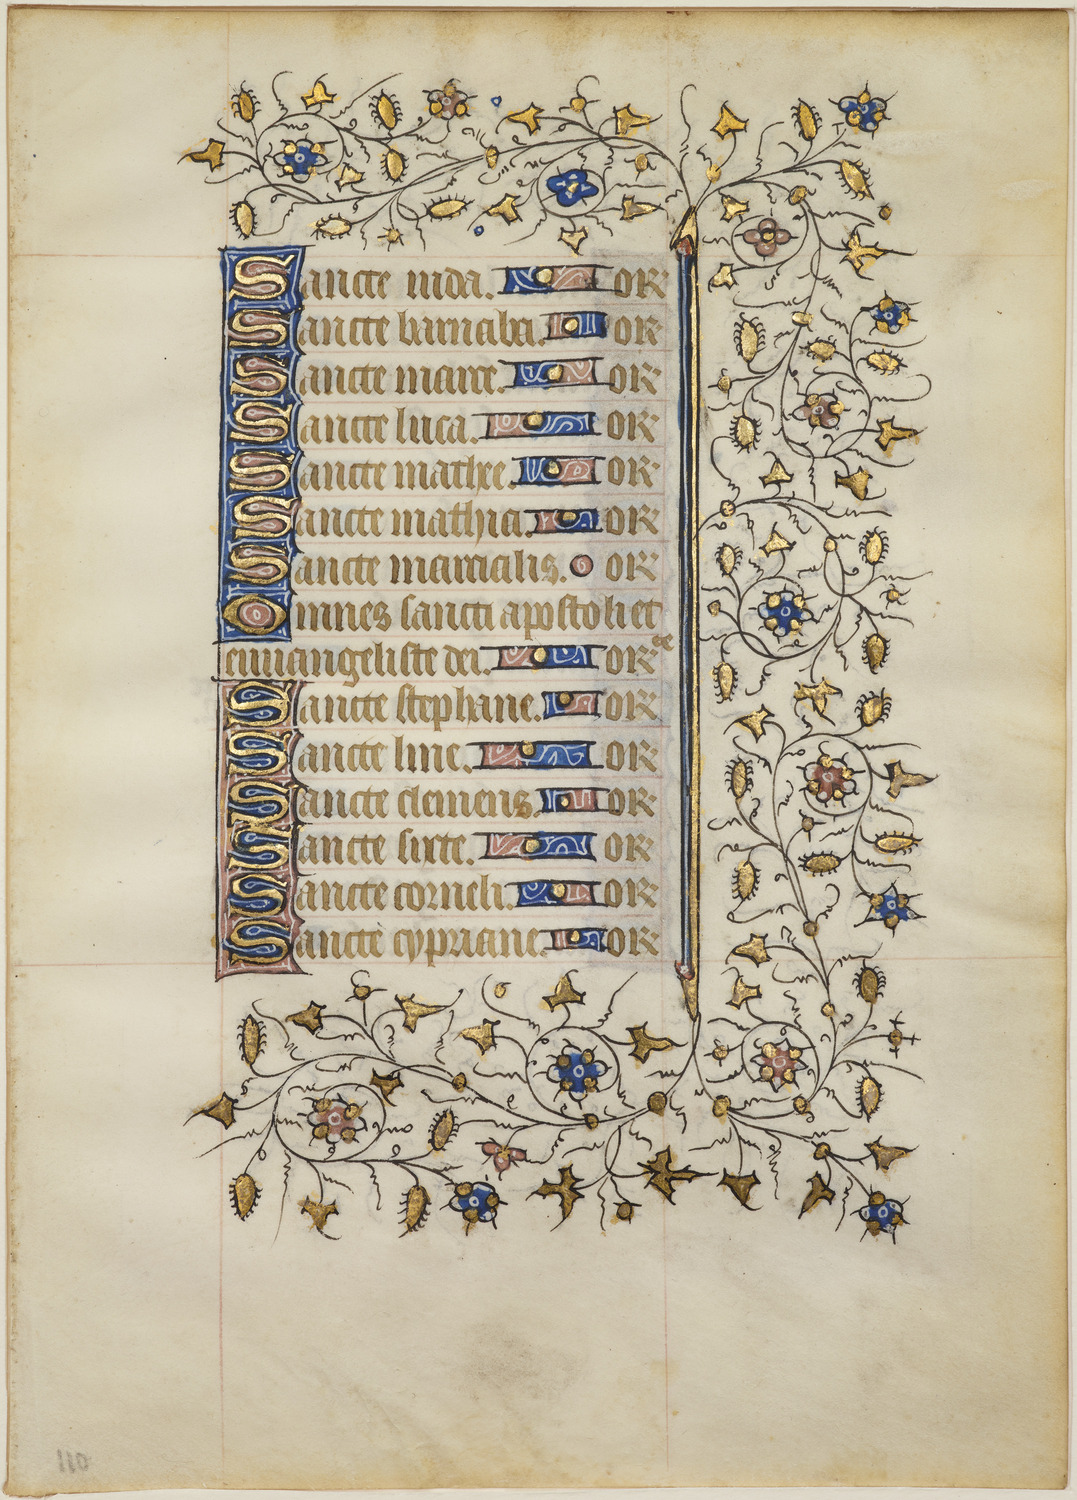 Sancte iuda. OR
Sancte barnaba. OR
Sancte marce. OR
Sancte luca. OR
Sancte mathee. OR
Sancte mathia. OR
Sancte marcialis. OR
Omnes sancti apostoli et
euuangeliste dei. OR ce
Sancte stephane. OR
Sancte line. OR
Sancte clemens. OR
Sancte sixte. OR
Sancte corneli. OR
Sancte cypriane. OR
110